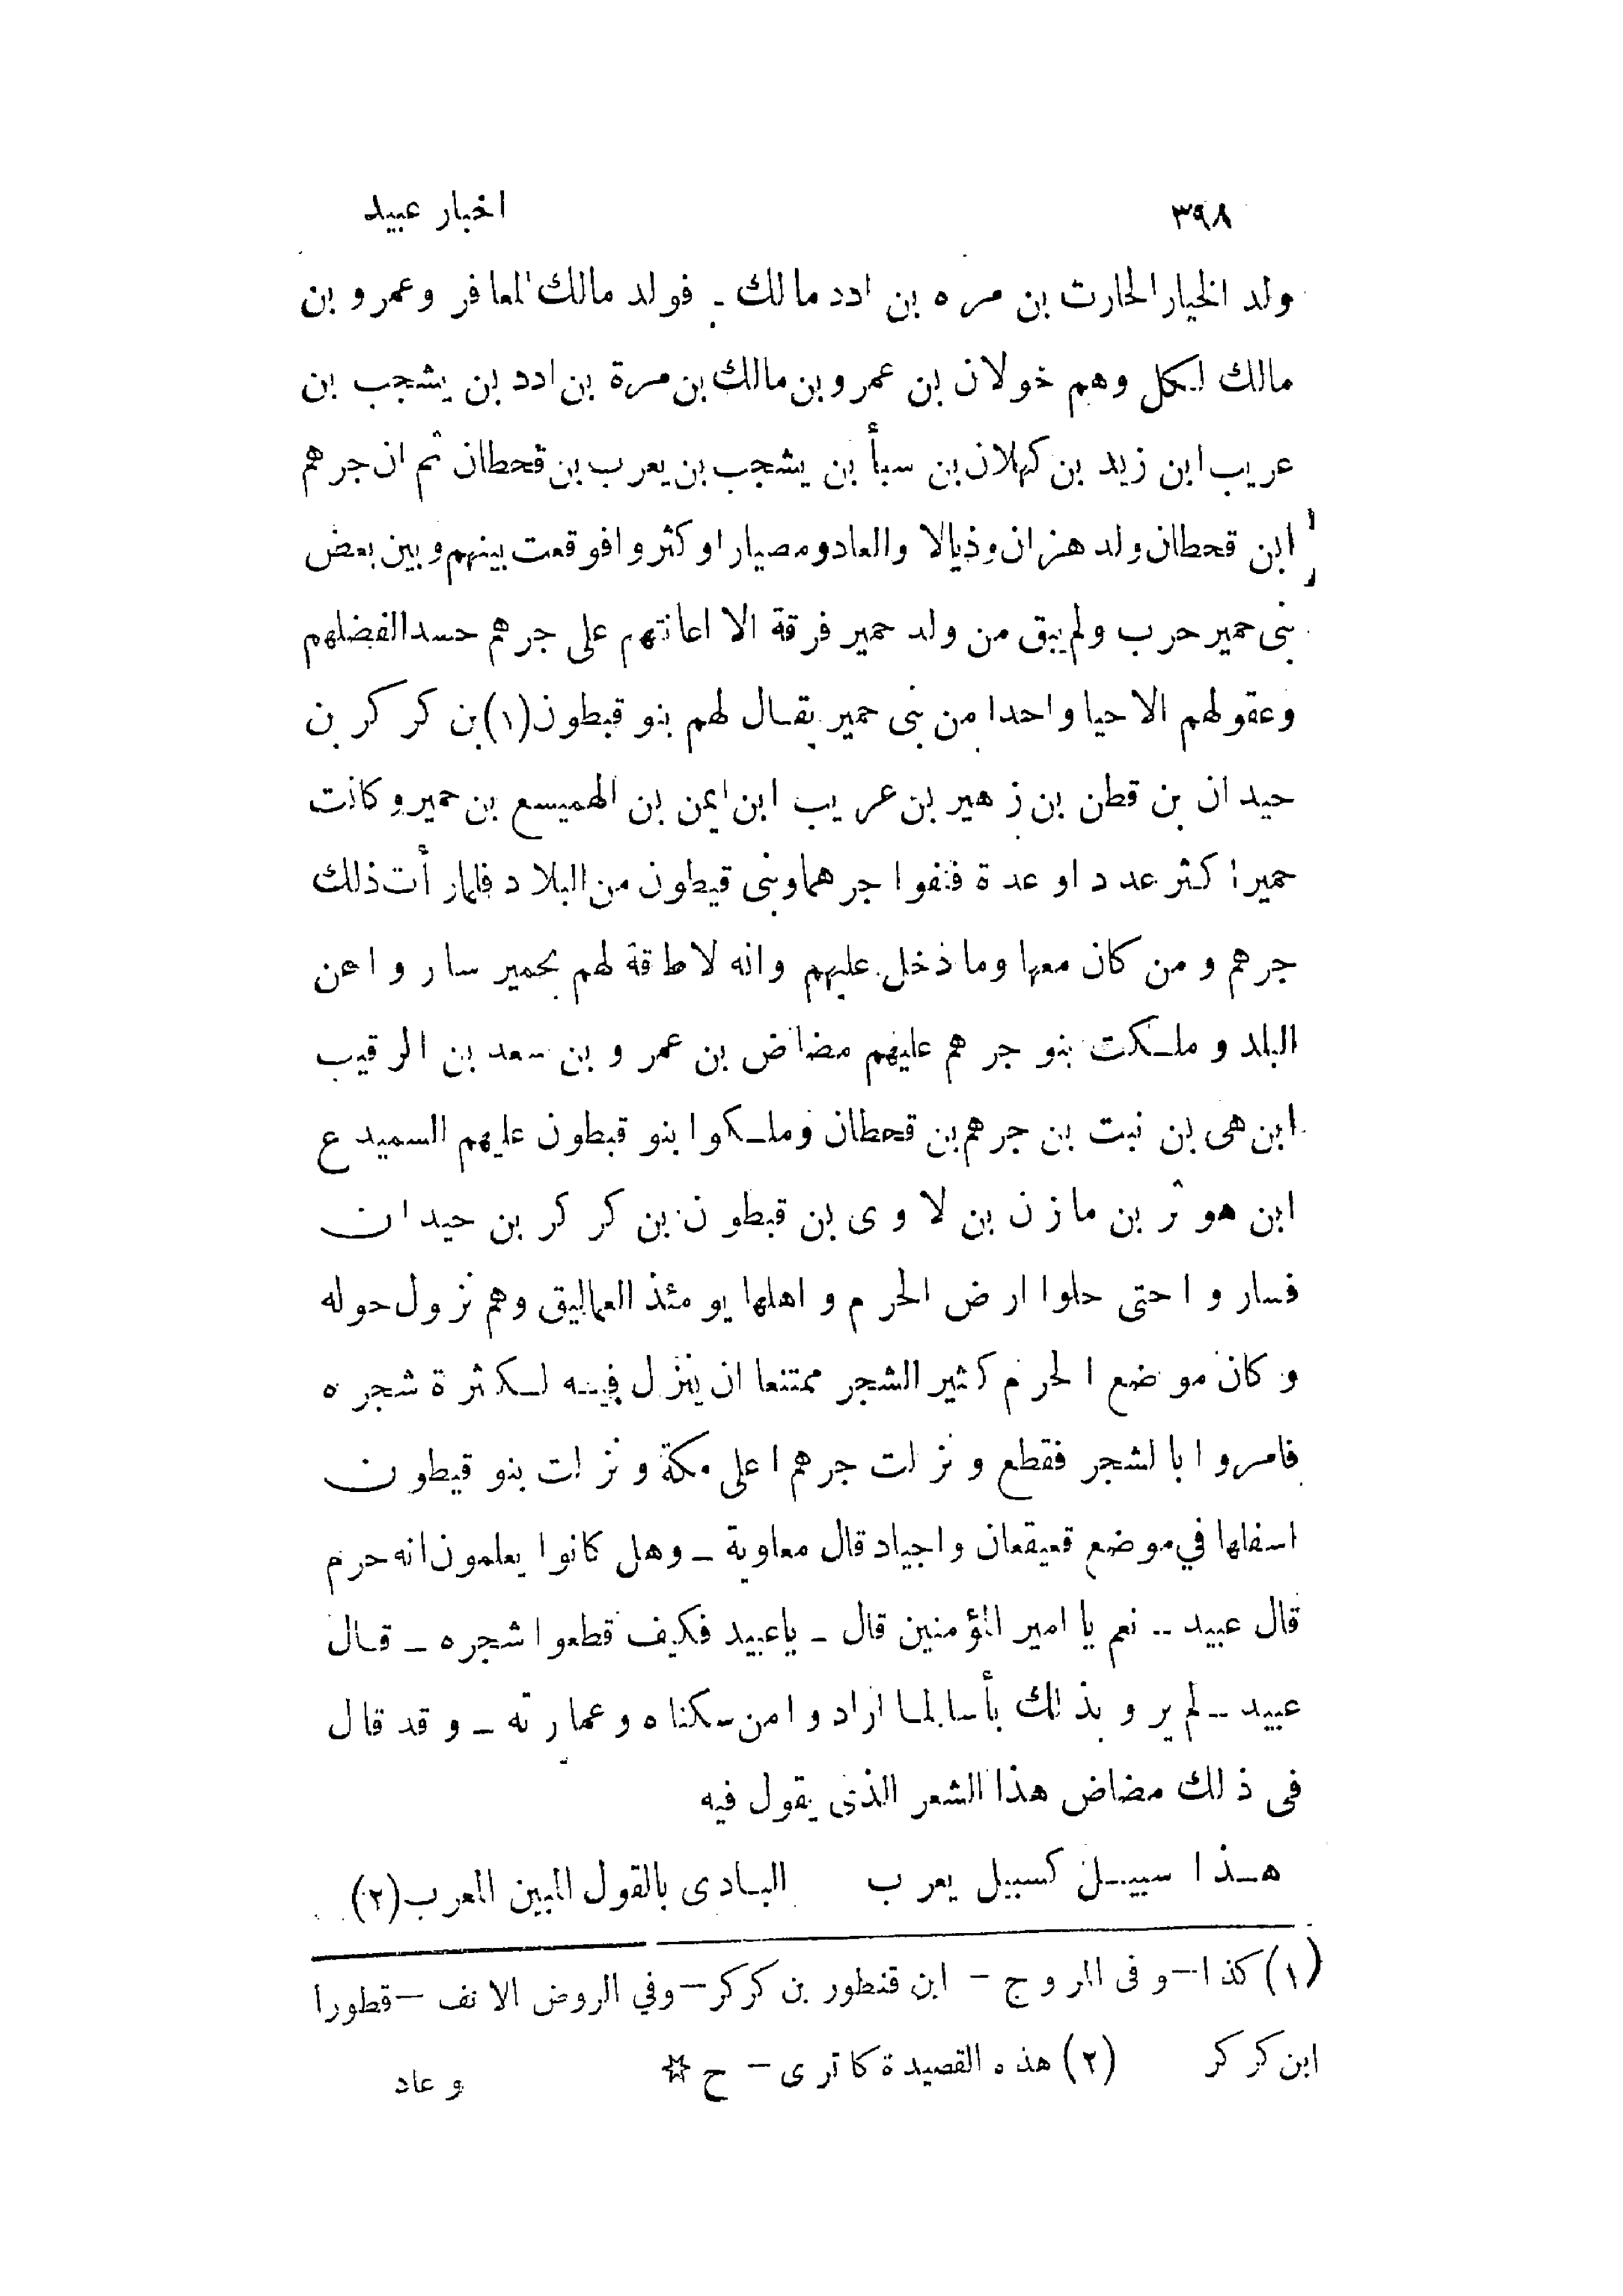 ٣٩٨ اخبار عبيد
ولد الخيار الحارث بن مره بن ادد مالك ـ فولد مالك المعافر وعمرو بن
مالك لكل وهم خولان بن عمرو بن مالك بن مرة بن ادد بن يشجب بن
عريب ابن زيد بن كهلان بن سبأ بن يشجب بن يعرب بن قحطان ثم ان جرهم
ابن قحطان ولد هزان وذيالا والعاد ومصيارا وكثروا فوقعت بينهم وبين بعض
بنى حمير حرب ولم يبق من ولد حمير فرقة الا اعانتهم على جرهم حسدا لفضلهم
وعقولهم الا حيا واحدا من بنى حمير يقال لهم بنو قبطون (١) بن كركر بن
حيدان بن قطن بن زهير بن عريب ابن ايمن بن الهميسع بن حمير وكانت
حمير اكثر عددا وعدة فنفوا جرهما وبنى قيطون من البلاد فلما رأت ذلك
جرهم ومن كان معها وما دخل عليهم وانه لا طاقة لهم بحمير ساروا عن
البلد وملكت بنو جرهم عليهم مضاض بن عمرو بن سعد بن الرقيب
ابن هى بن نبت بن جرهم بن قحطان وملكوا بنو قبطون عليهم السميدع
ابن هوثر بن مازن بن لاوى بن قبطون بن كركر بن حيدان
فساروا حتى حلوا ارض الحرم واهلها يومئذ العماليق وهم نزول حوله
وكان موضع الحرم كثير الشجر ممتنعا ان ينزل فيه لكثرة شجره
فامروا بالشجر فقطع ونزلت جرهم اعلى مكة ونزلت بنو قيطون
اسفلها في موضع قعيقعان واجياد قال معاوية ـ وهل كانوا يعلمون انه حرم
قال عبيد ـ نعم يا امير المؤمنين قال ـ يا عبيد فكيف قطعوا شجره ـ قال
عبيد ـ لم يروا بذلك بأسا لما ارادوا من سكناه وعمارته ـ وقد قال
فى ذلك مضاض هذا الشعر الذى يقول فيه
هذا سبيل كسبيل يعرب البادى بالقول المبين المعرب (٢)
(١) كذا — وفى المروج — ابن قنطور بن كركر — وفي الروض الانف — قطورا
ابن كركر (٢) هذه القصيدة كما ترى — ح ☆
وعاد